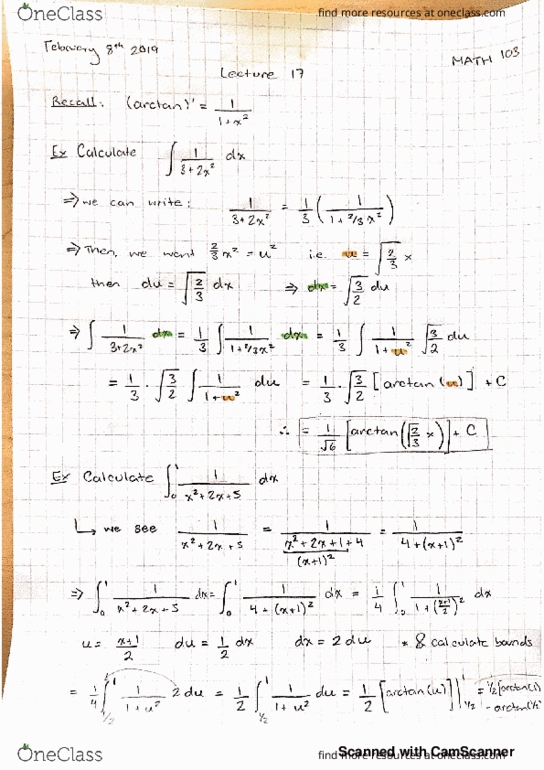 OneClass
find more resources at oneclass.com
February 8th 2019
MATH 103
Lecture 17
Recall: (arctan)' = 1/(1+x²)
Ex Calculate ∫ 1/(3+2x²) dx
⇒ we can write: 1/(3+2x²) = 1/3 (1/(1+2/3x²))
⇒ Then, we want 2/3 x² = u² i.e. u = √(2/3) x
then du = √(2/3) dx ⇒ dx = √(3/2) du
⇒ ∫ 1/(3+2x²) dx = 1/3 ∫ 1/(1+2/3x²) dx = 1/3 ∫ 1/(1+u²) √(3/2) du
= 1/3 · √(3/2) ∫ 1/(1+u²) du = 1/3 · √(3/2) [arctan(u)] + C
∴ = 1/√6 [arctan(√(2/3) x)] + C
Ex Calculate ∫₀¹ 1/(x²+2x+5) dx
↳ we see 1/(x²+2x+5) = 1/(x²+2x+1+4) = 1/(4+(x+1)²)
(x+1)²
⇒ ∫₀¹ 1/(x²+2x+5) dx = ∫₀¹ 1/(4+(x+1)²) dx = 1/4 ∫₀¹ 1/(1+((x+1)/2)²) dx
u = (x+1)/2 du = 1/2 dx dx = 2 du * & calculate bounds
= 1/4 ∫_{1/2}^1 1/(1+u²) 2 du = 1/2 ∫_{1/2}^1 1/(1+u²) du = 1/2 [arctan(u)]|_{1/2}^1 = 1/2[arctan(1)
- arctan(1/2
Scanned with CamScanner
OneClass
find more resources at oneclass.com